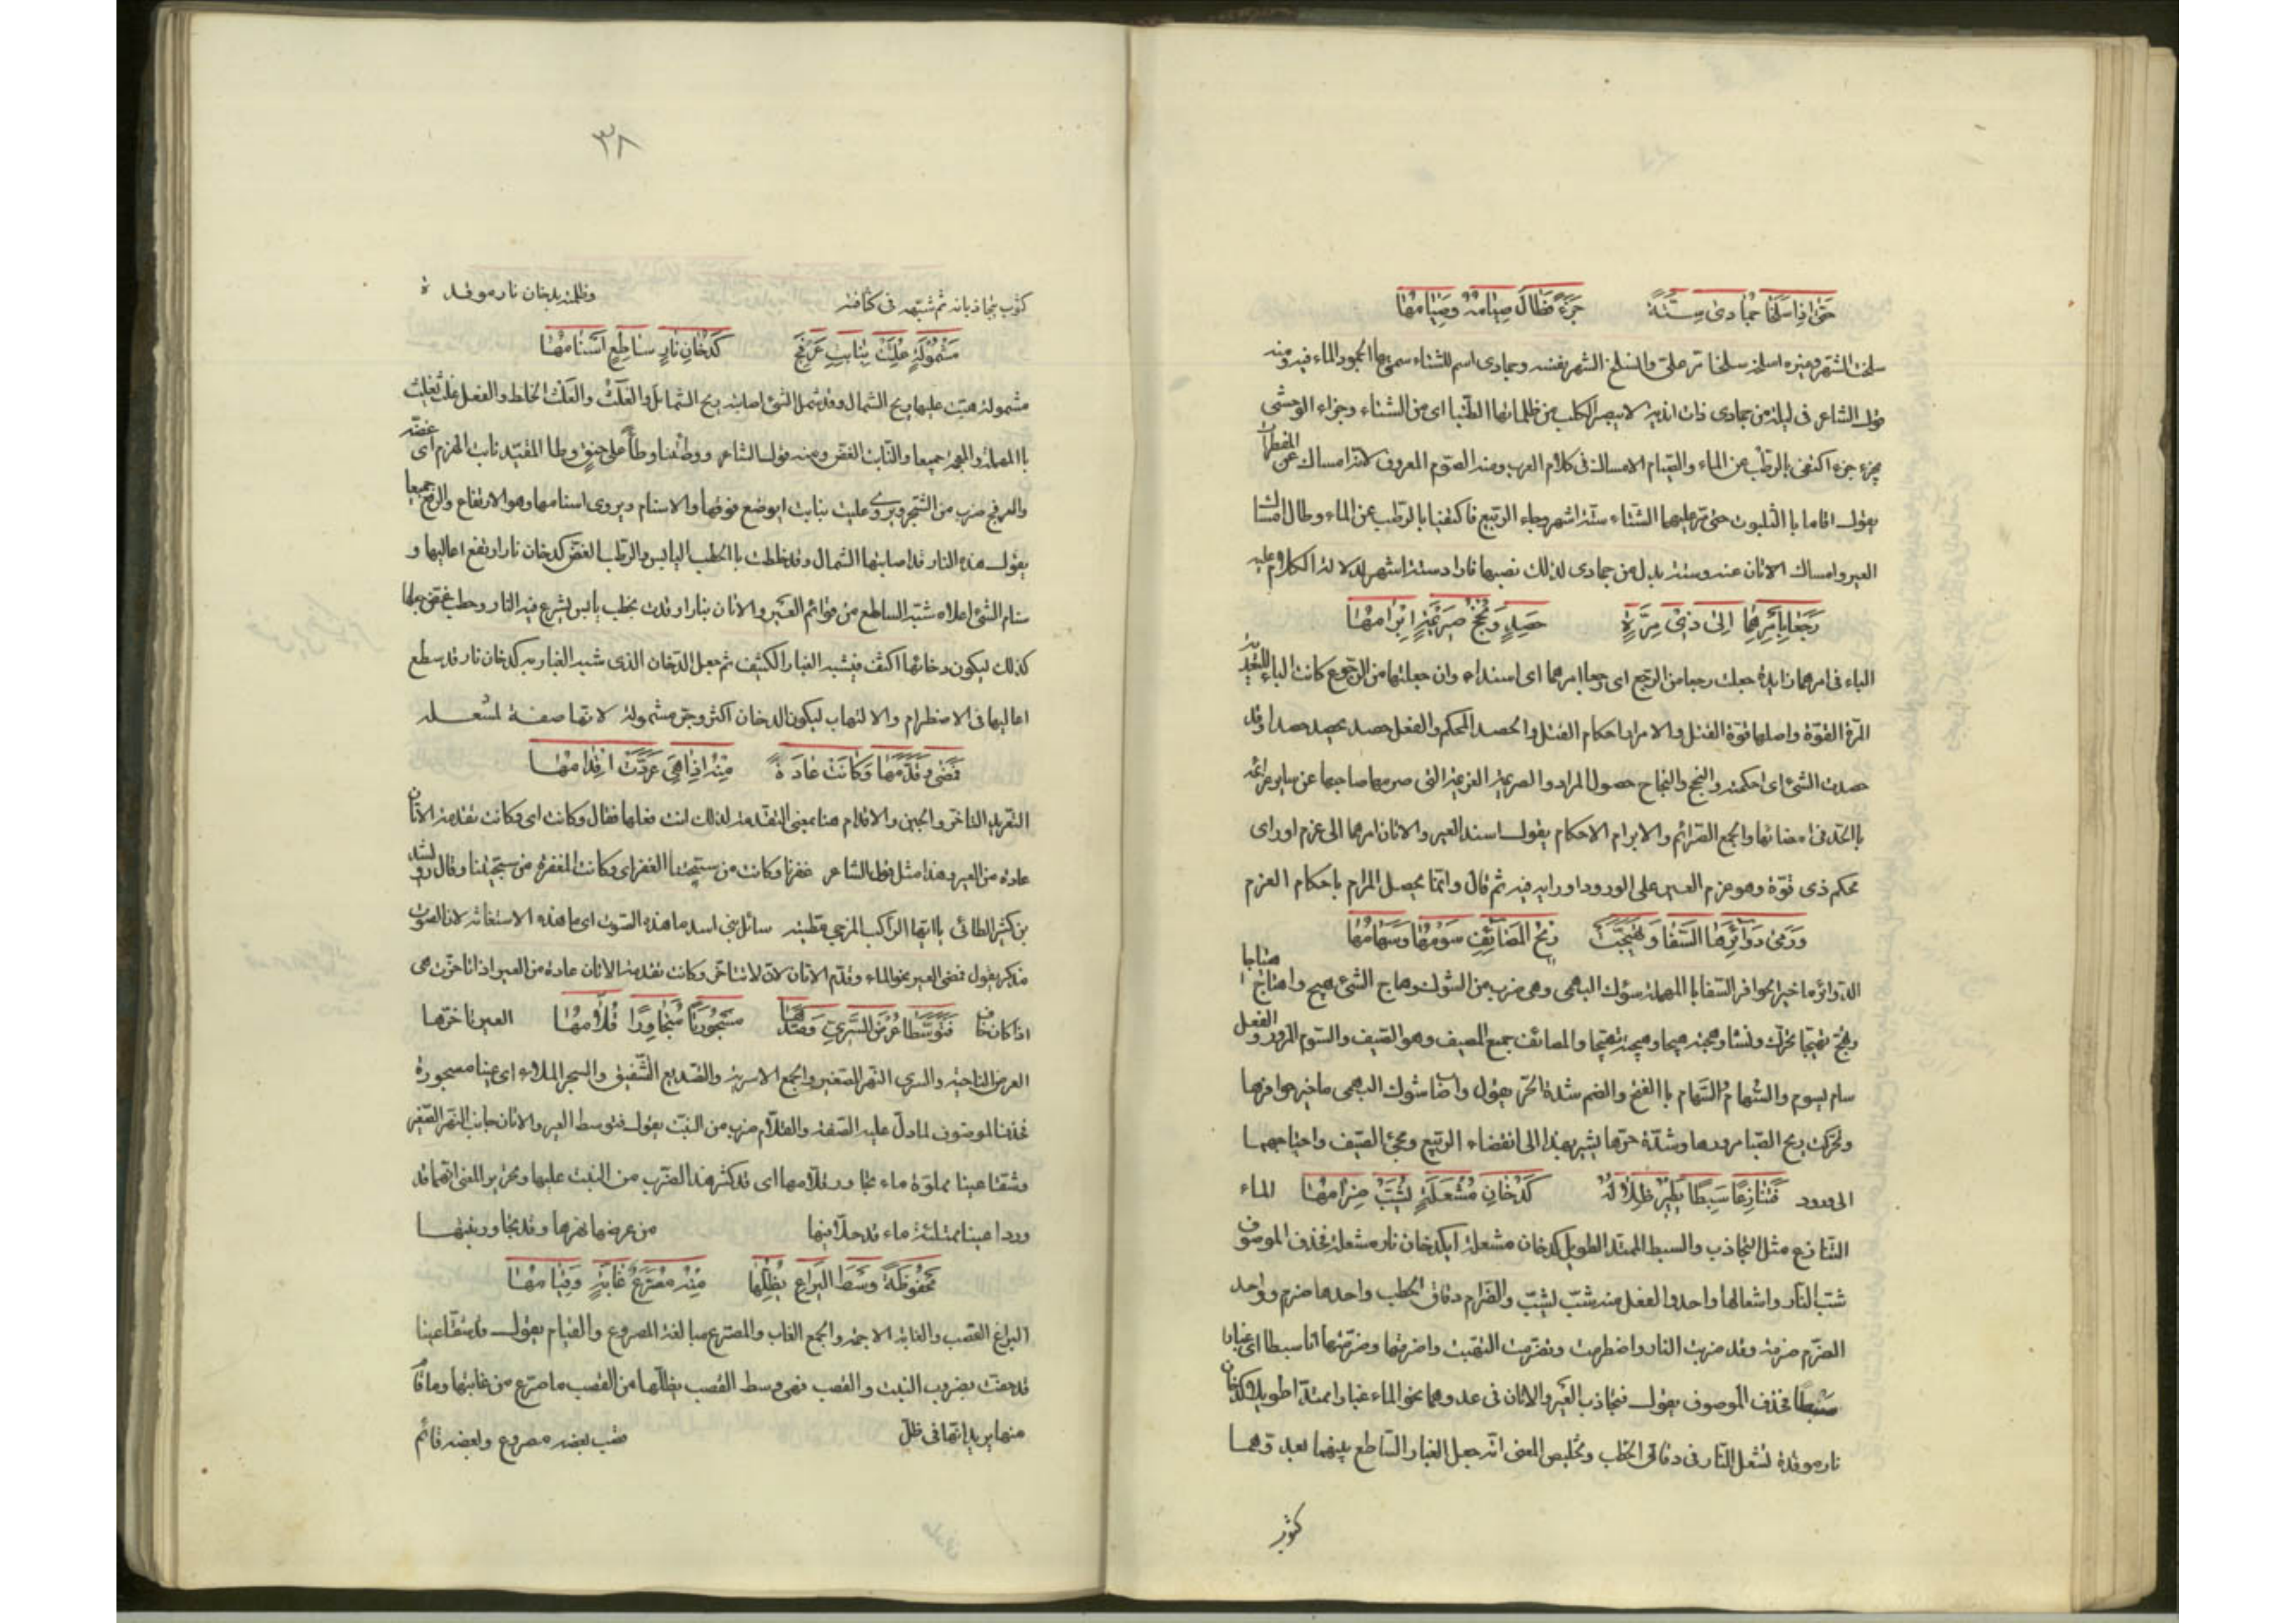 حتى اذا سلخا جمادى ستة جزءا فطال صيامه وصيامها
سلخت الشهر وغيره اسلخه سلخا مر علي وانسلخ الشهر نفسه وجمادى اسم للشتاء سمي بها لجمود الماء فيه ومنه
قول الشاعر في ليلة من جمادى ذات اندية لا يبصر الكلب من ظلمائها الطنبا اى من الشتاء وجزاء الوحشى
يجزء جزءا اكتفى بالرطب عن الماء والصيام الامساك فى كلام العرب ومنه الصوم المعروف لانه امساك عن المفطرات
يقول اقاما با الثلبوت حتى مر عليهما الشتاء ستة اشهر وجاء الربيع فاكتفيا با لرطب عن الماء وطال امساك
العير وامساك الاتان عنه وستة بدل من جمادى لذلك نصبها واراد ستة اشهر لدلالة الكلام عليه
رجعا بامرهما الى ذى مرة حصد ونجح صريمة ابرامها
الباء فى امرهما زايدة جعلت رجعا من الرجع اى رجعا امرهما اى اسنداه وان جعلتها من الرجوع كانت الباء للتعدية
المرة القوة واصلها قوة الفتل والامرار احكام الفتل والحصد المحكم والفعل حصد يحصد حصدا وقد
حصدت الشئ اى احكمته والنجح والنجاح حصول المراد والصريمة العزيمة التى صرمها صاحبها عن ساير عزائمه
با الجد فى امضائها والجمع الصرائم والابرام الاحكام يقول اسند العير والاتان امرهما الى عزم او راى
محكم ذى قوة وهو عزم العير على الورود او رايه فيه ثم قال وانما يحصل المرام باحكام العزم
ورمى دوابرها السفا وتهيجت ريح المصايف سومها وسهامها
الدوابر ما خير الحوافر السفا با المهملة شوك البهمى وهى ضرب من الشوك وهاج الشئ هيج واهتاج اهتياجا
وتهيج تهيجا تحرك ونشا وهجته هيجا وهيجته تهييجا والمصائف جمع المصيف وهو الصيف والسوم المرور والفعل
سام يسوم والسهام والسهام با الفتح والضم شدة الحر يقول واصاب شوك البهمى ماخير حوافرها
وتحرك ريح الصبا مرورها وشدة حرها يشير بهذا الى انقضاء الربيع ومجئ الصيف واحتياجهما
الى ورود فتنازعا سبطا يطير ظلاله كدخان مشعلة يشب ضرامها الماء
التنازع مثل التجاذب والسبط الممتد الطويل كدخان مشعلة اى كدخان نار مشعلة فحذف الموصوف
شب النار واشعالها واحد والفعل منه شب يشب والضرام دقاق الحطب واحدها ضرم وواحد
الضرم ضرمة وقد ضرمت النار واضطرمت وتضرمت التهبت واضرمتها وضرمتها انا سبطا اى غبارا
سبطا فحذف الموصوف يقول فتجاذب العير والاتان فى عدوهما نحو الماء غبارا ممتدا طويلا كدخان
نار موقدة تشعل النار فى دقاق الحطب وتلخيص المعنى انه جعل الغبار الساطع بينهما بعدوهما
كثوب
٣٨
كثوب يتجاذبانه ثم شبهه فى كثافته وظلمته بدخان نار موقدة
مشمولة غلثت بنابت عرفج كدخان نار ساطع اسنامها
مشمولة هبت عليها ريح الشمال وقد شمل الشئ اصابته ريح الشمايل والغلث والعلث الخلط والفعل غلث يغلث
با المعجمة والمهملة جميعا والنابت الغض ومنه قول الشاعر ووطئتنا وطأ على حنق وطأ المقيد نابت الهرم اى غضه
والعرفج ضرب من الشجر ويروى عليت بنابت اى وضع فوقها والاسنام ويروى اسنامها وهو الارتفاع والرفع جميعا
يقول هذه النار قد اصابتها الشمال وقد خلطت با الحطب اليابس والرطب الغض كدخان نار ارتفع اعاليها و
سنام الشئ اعلاه شبه الساطع من قوائم العير والاتان بنار اوقدت بحطب يابس تسرع فيه النار وحطب غض جعلها
كذلك ليكون دخانها اكثف فيشبه الغبار الكثيف ثم جعل الدخان الذى شبه الغبار به كدخان نار قد سطع
اعاليها فى الاضطرام والالتهاب ليكون الدخان اكثر وجر مشمولة لانها صفة لمشعلة
فمضى وقدمها وكانت عادة منه اذا هى عردت اقدامها
التعريد التاخر والجبن والاقدام هنا بمعنى التقدمة لذلك انث فعلها فقال وكانت اى وكانت تقدمة الاتان
عادة من العير وهذا مثل قول الشاعر غفرنا وكانت من سجيتنا الغفر اى وكانت المغفرة من سجيتنا وقال رويشد
بن كثير الطائى يا ايها الراكب المزجى مطيته سائل بنى اسد ما هذه الصوت اى ما هذه الاستغاثة لان الصوت
مذكر يقول فمضى العير نحو الماء وقدم الاتان لان لا تتاخر وكانت تقدمة الاتان عادة من العير اذا تاخرت هى
اذا كان خاف فتوسطا عرض السرى وصدعا مسجورة متجاورا قلامها العير تاخرها
العرض الناحية والسرى النهر الصغير والجمع الاسرية والتصديع التشقيق والسجر الملاء اى عينا مسجورة
فحذف الموصوف لما دل عليه الصفة والقلام ضرب من النبت يقول فتوسط العير والاتان جانب النهر الصغير
وشقا عينا مملوة ماء تجاور قلامها اى قد كثر هذا الضرب من النبت عليها وتحرير المعنى انهما قد
وردا عينا ممتلئة ماء قد دخلا فيها من عرض نهرها وقد تجاور نبتها
محفوفة وسط اليراع يظلها منه مصرع غابة وقيامها
اليراع القصب والغابة الاجمة والجمع الغاب والمصرع مبالغة المصروع والقيام يقول قد شقا عينا
قد حفت بضروب النبت والقصب فهى وسط القصب يظلها من القصب ما صرع من غابتها وما قام
منها يريد انها فى ظل قصب بعضه مصروع وبعضه قائم